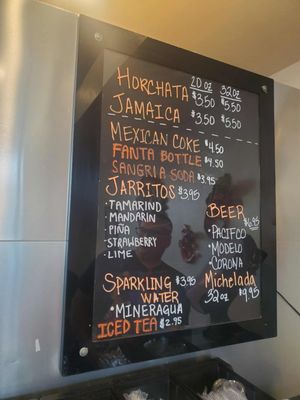 20 oz 32 oz
HORCHATA $3.50 $5.50
JAMAICA $3.50 $5.50
MEXICAN COKE $4.50
FANTA BOTTLE $4.50
SANGRIA SODA $3.95
JARRITOS $3.95
• TAMARIND
• MANDARIN
• PIÑA
• STRAWBERRY
• LIME
BEER $6.95
• PACIFCO
• MODELO
• CORONA
SPARKLING WATER $3.95
• MINERAGUA
ICED TEA $2.95
Michelada
32oz $9.95